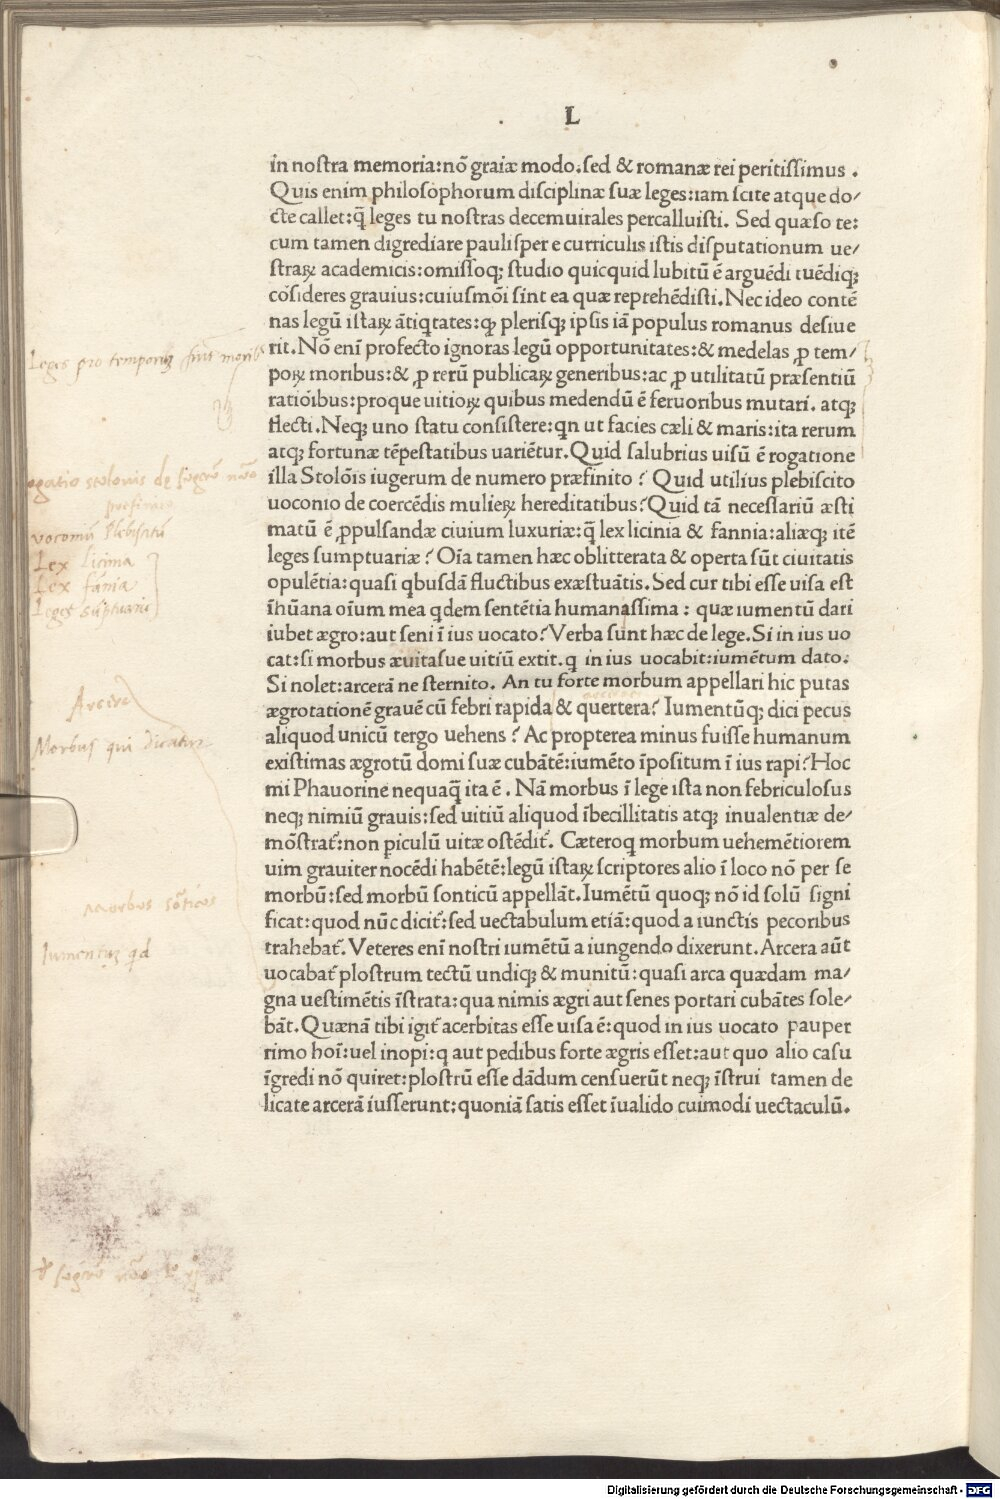 L
in nostra memoria:nõ graiæ modo.sed & romanæ rei peritissimus .
Quis enim philosophorum disciplinæ suæ leges:iam scite atque do/
cte callet:q̃ leges tu nostras decemuirales percalluisti. Sed quæso te:
cum tamen digrediare paulisper e curriculis istis disputationum ue/
straꝝ academicis:omissoqꝫ studio quicquid lubitũ ẽ arguẽdi tuẽdiqꝫ
cõsideres grauius:cuiusmõi sint ea quæ reprehẽdisti. Nec ideo contẽ
nas legũ istaꝝ ãtiqtates:qꝫ plerisqꝫ ipsis iã populus romanus desiue
rit. Nõ enĩ profecto ignoras legũ opportunitates:& medelas ꝓ tem/
poꝝ moribus:& ꝓ rerũ publicaꝝ generibus:ac ꝓ utilitatũ præsentiũ
ratiõibus:proque uitioꝝ quibus medendũ ẽ feruoribus mutari. atqꝫ
flecti. Neqꝫ uno statu consistere:qn ut facies cæli & maris:ita rerum
atqꝫ fortunæ tẽpestatibus uariẽtur. Quid salubrius uisũ ẽ rogatione
illa Stolõis iugerum de numero præfinito? Quid utilius plebiscito
uoconio de coercẽdis mulieꝝ hereditatibus? Quid tã necessariũ æsti
matũ ẽ ꝓpulsandæ ciuium luxuriæ:q̃ lex licinia & fannia:aliæqꝫ itẽ
leges sumptuariæ? Oĩa tamen hæc oblitterata & operta sũt ciuitatis
opulẽtia:quasi qbusdã fluctibus exæstuãtis. Sed cur tibi esse uisa est
ĩhũana oĩum mea qdem sentẽtia humanassima: quæ iumentũ dari
iubet ægro:aut seni ĩ ius uocato? Verba sunt hæc de lege. Si in ius uo
cat:si morbus æuitasue uitiũ extit. q in ius uocabit:iumẽtum dato.
Si nolet:arcerã ne sternito. An tu forte morbum appellari hic putas
ægrotationẽ grauẽ cũ febri rapida & quertera? Iumentũqꝫ dici pecus
aliquod unicũ tergo uehens? Ac propterea minus fuisse humanum
existimas ægrotũ domi suæ cubãtẽ:iumẽto ĩpositum ĩ ius rapi? Hoc
mi Phauorine nequaq̃ ita ẽ. Nã morbus ĩ lege ista non febriculosus
neqꝫ nimiũ grauis:sed uitiũ aliquod ĩbecillitatis atqꝫ inualentiæ de/
mõstrat̃:non ꝑiculũ uitæ ostẽdit̃. Cæteroq morbum uehemẽtiorem
uim grauiter nocẽdi habẽtẽ:legũ istaꝝ scriptores alio ĩ loco nõ per se
morbũ:sed morbũ sonticũ appellãt. Iumẽtũ quoqꝫ nõ id solũ signi
ficat:quod nũc dicit̃:sed uectabulum etiã:quod a iunctis pecoribus
trahebat̃. Veteres enĩ nostri iumẽtũ a iungendo dixerunt. Arcera aũt
uocabat̃ plostrum tectũ undiqꝫ & munitũ:quasi arca quædam ma/
gna uestimẽtis ĩstrata:qua nimis ægri aut senes portari cubãtes sole/
bãt. Quænã tibi igit̃ acerbitas esse uisa ẽ:quod in ius uocato pauper
rimo hoĩ:uel inopi:q aut pedibus forte ægris esset:aut quo alio casu
ĩgredi nõ quiret:plostrũ esse dãdum censuerũt neqꝫ ĩstrui tamen de
licate arcerã iusserunt:quoniã satis esset ĩualido cuimodi uectaculũ.
Leges pro temporũ sunt morib
vocomũ Plebiscitũ
Lex licinia
Lex fãnia
Leges sũptuarie
Morbus qui dicatur
morbus sõticus
Iumentũ qd
Digitalisierung gefördert durch die Deutsche Forschungsgemeinschaft - DFG